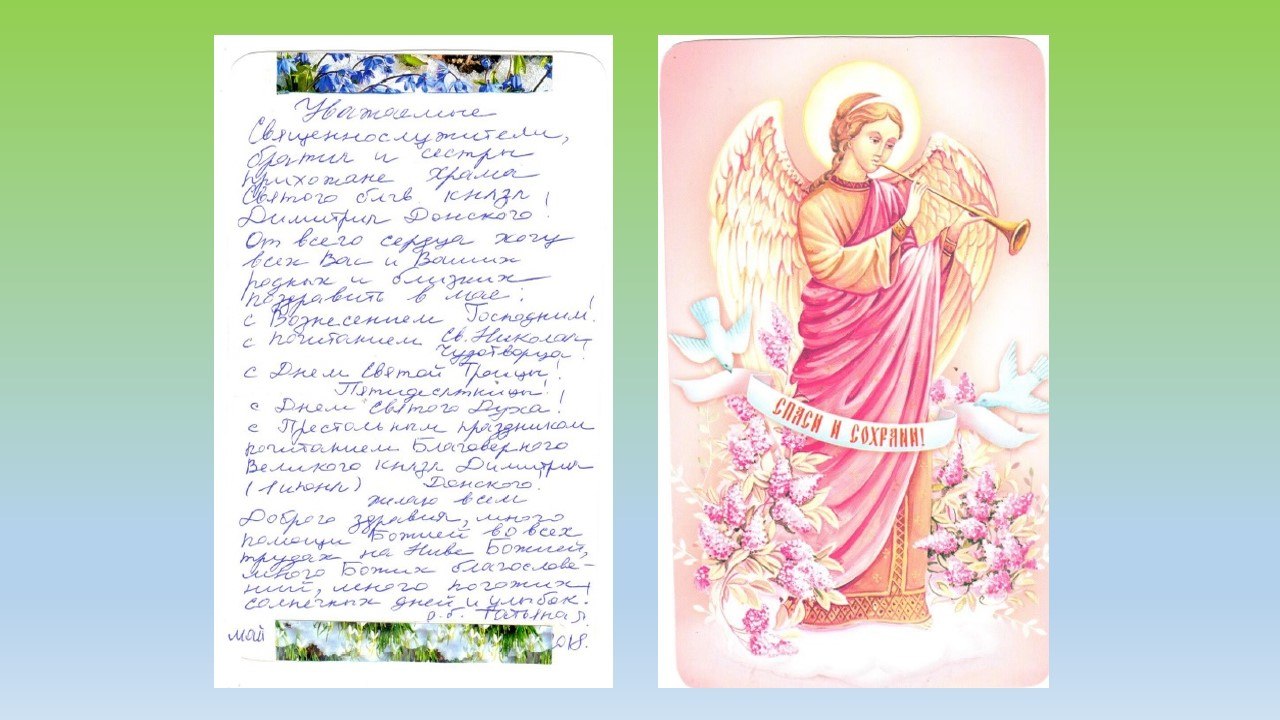 Уважаемые
Священнослужители,
братия и сестры
прихожане храма
Святого блгв князя
Димитрия Донского!
От всего сердца хочу
всех Вас и Ваших
родных и близких
поздравить в мае:
с Вознесением Господним!
с почитанием Св. Николая
Чудотворца!
с Днем Святой Троицы!
Пятидесятницы!
с Днем Святого Духа!
с Престольным праздником
почитанием Благоверного
Великого князя Димитрия
(1 июня) Донского.
желаю всем
Доброго здравия, много
помощи Божией во всех
трудах на Ниве Божией,
много Божих благослове-
ний, много погожих
солнечных дней и улыбок!
р.б. Татьяна
май 018.
СПАСИ И СОХРАНИ!